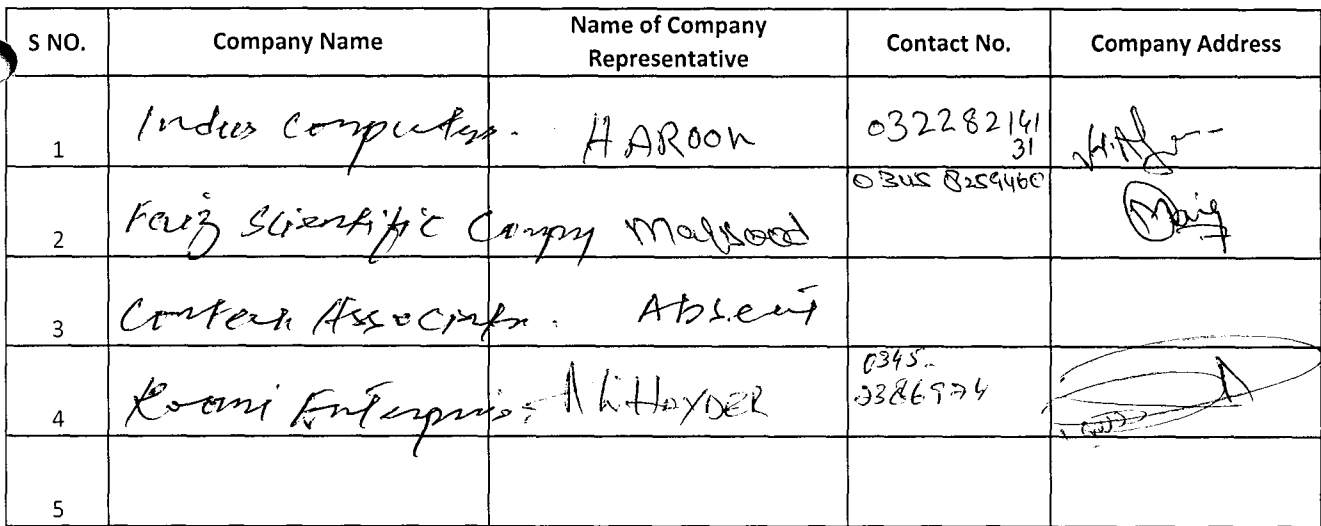 S NO. Company Name Name of Company Representative Contact No. Company Address
1 Indus Computers. HAROON 03228214131
2 Faiz Scientific Compny Maqsood 0345 8259460
3 Associates. Absent
4 Roomi Enterprises Ali HAYDER 0345-
5